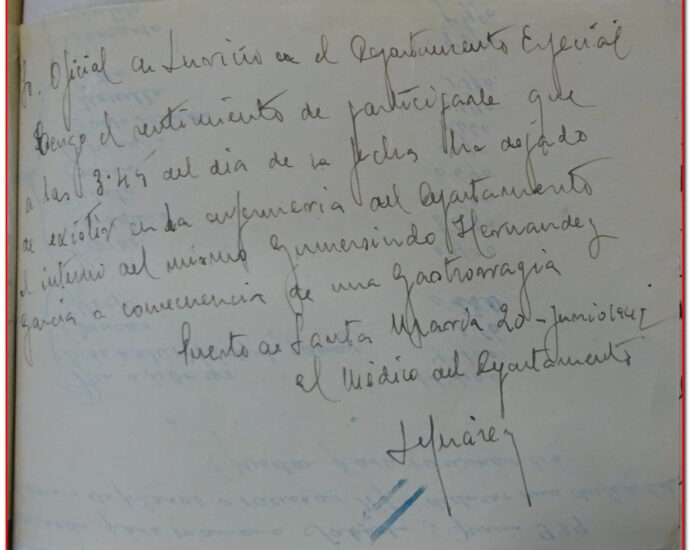 Sr. Oficial en Servicio en el Departamento Especial
Tengo el sentimiento de participarle que
a las 3.45 del dia de la fecha ha dejado
de existir en la enfermeria del Departamento
el interno del mismo Gumersindo Hernandez
Garcia a consecuencia de una Gastrorragia
Puerto de Santa Maria 20 - Junio 1941
el Médico del Departamento